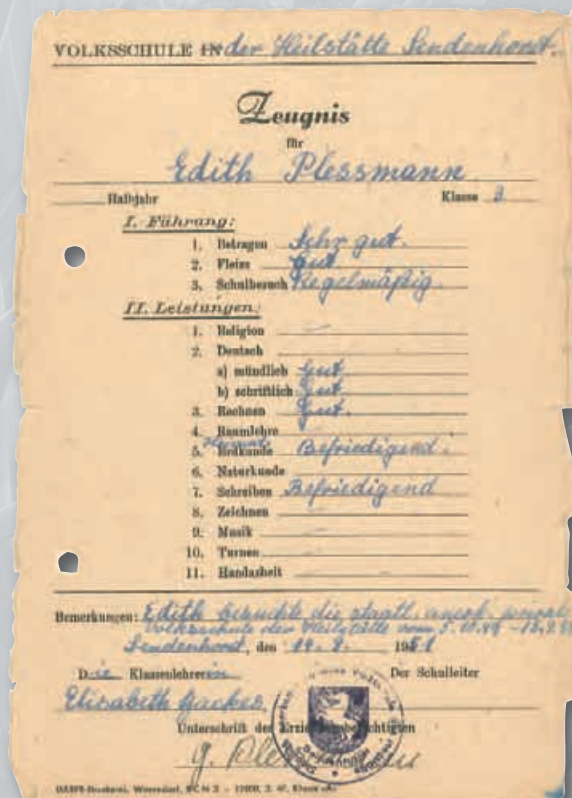 VOLKSSCHULE IN der Heilstätte Sendenhorst.
Zeugnis
für
Edith Plessmann
Halbjahr Klasse 3
I. Führung:
1. Betragen Sehr gut.
2. Fleiss Gut.
3. Schulbesuch Regelmäßig.
II. Leistungen:
1. Religion —
2. Deutsch
a) mündlich Gut
b) schriftlich Gut
3. Rechnen Gut.
4. Raumlehre
Heimat
5. Erdkunde Befriedigend.
6. Naturkunde
7. Schreiben Befriedigend
8. Zeichnen
9. Musik
10. Turnen
11. Handarbeit
Bemerkungen: Edith besuchte die staatl. anerk.
Volksschule der Heilstätte vom
Sendenhorst, den 1951
Die Klassenlehrerin Der Schulleiter
Elisabeth
Unterschrift der Erziehungsberechtigten